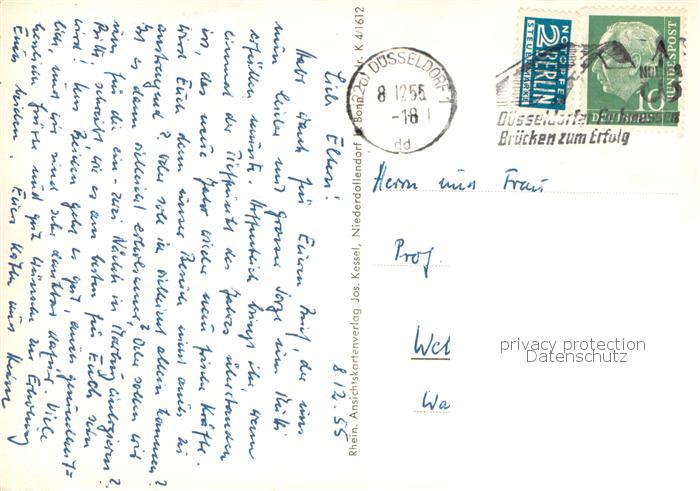 8.12.55
Lieb. Eltern!
Habt Dank für Euren Brief, der uns
nun leider mit grosser Sorge um Mutti
erfüllen musste. Hoffentlich bringt ihr, wenn
einmal der Tiefpunkt des Jahres überstanden
ist, das neue Jahr wieder neue frische Kräfte.
Wird Euch denn unser Besuch nicht auch zu
anstrengend? Oder soll ich vielleicht allein kommen?
Ist es dann vielleicht erholsamer? Oder sollen wir
uns für die ein-zwei Nächte in Marburg einlogieren?
Bitte, schreibt wie es am besten für Euch sein
wird! Uns Beiden geht es gut, auch gesundheit=
lich, und wir sind sehr dankbar dafür. Viele
herzliche Grüsse und gute Wünsche zur Erholung
Euch beiden. Eure Käthe und Heinz
Rhein. Ansichtskartenverlag Jos. Kessel, Niederdollendorf b. Bonn Nr. K 4/1612
(22a) DÜSSELDORF 1
8.12.55
-18
dd
NOTOPFER
2 BERLIN
STEUERMARKE
DEUTSCHE BUNDESPOST
10
Düsseldorfer Fachmessen
Brücken zum Erfolg
Herrn und Frau
Prof.
Wel
Wa
privacy protection
Datenschutz